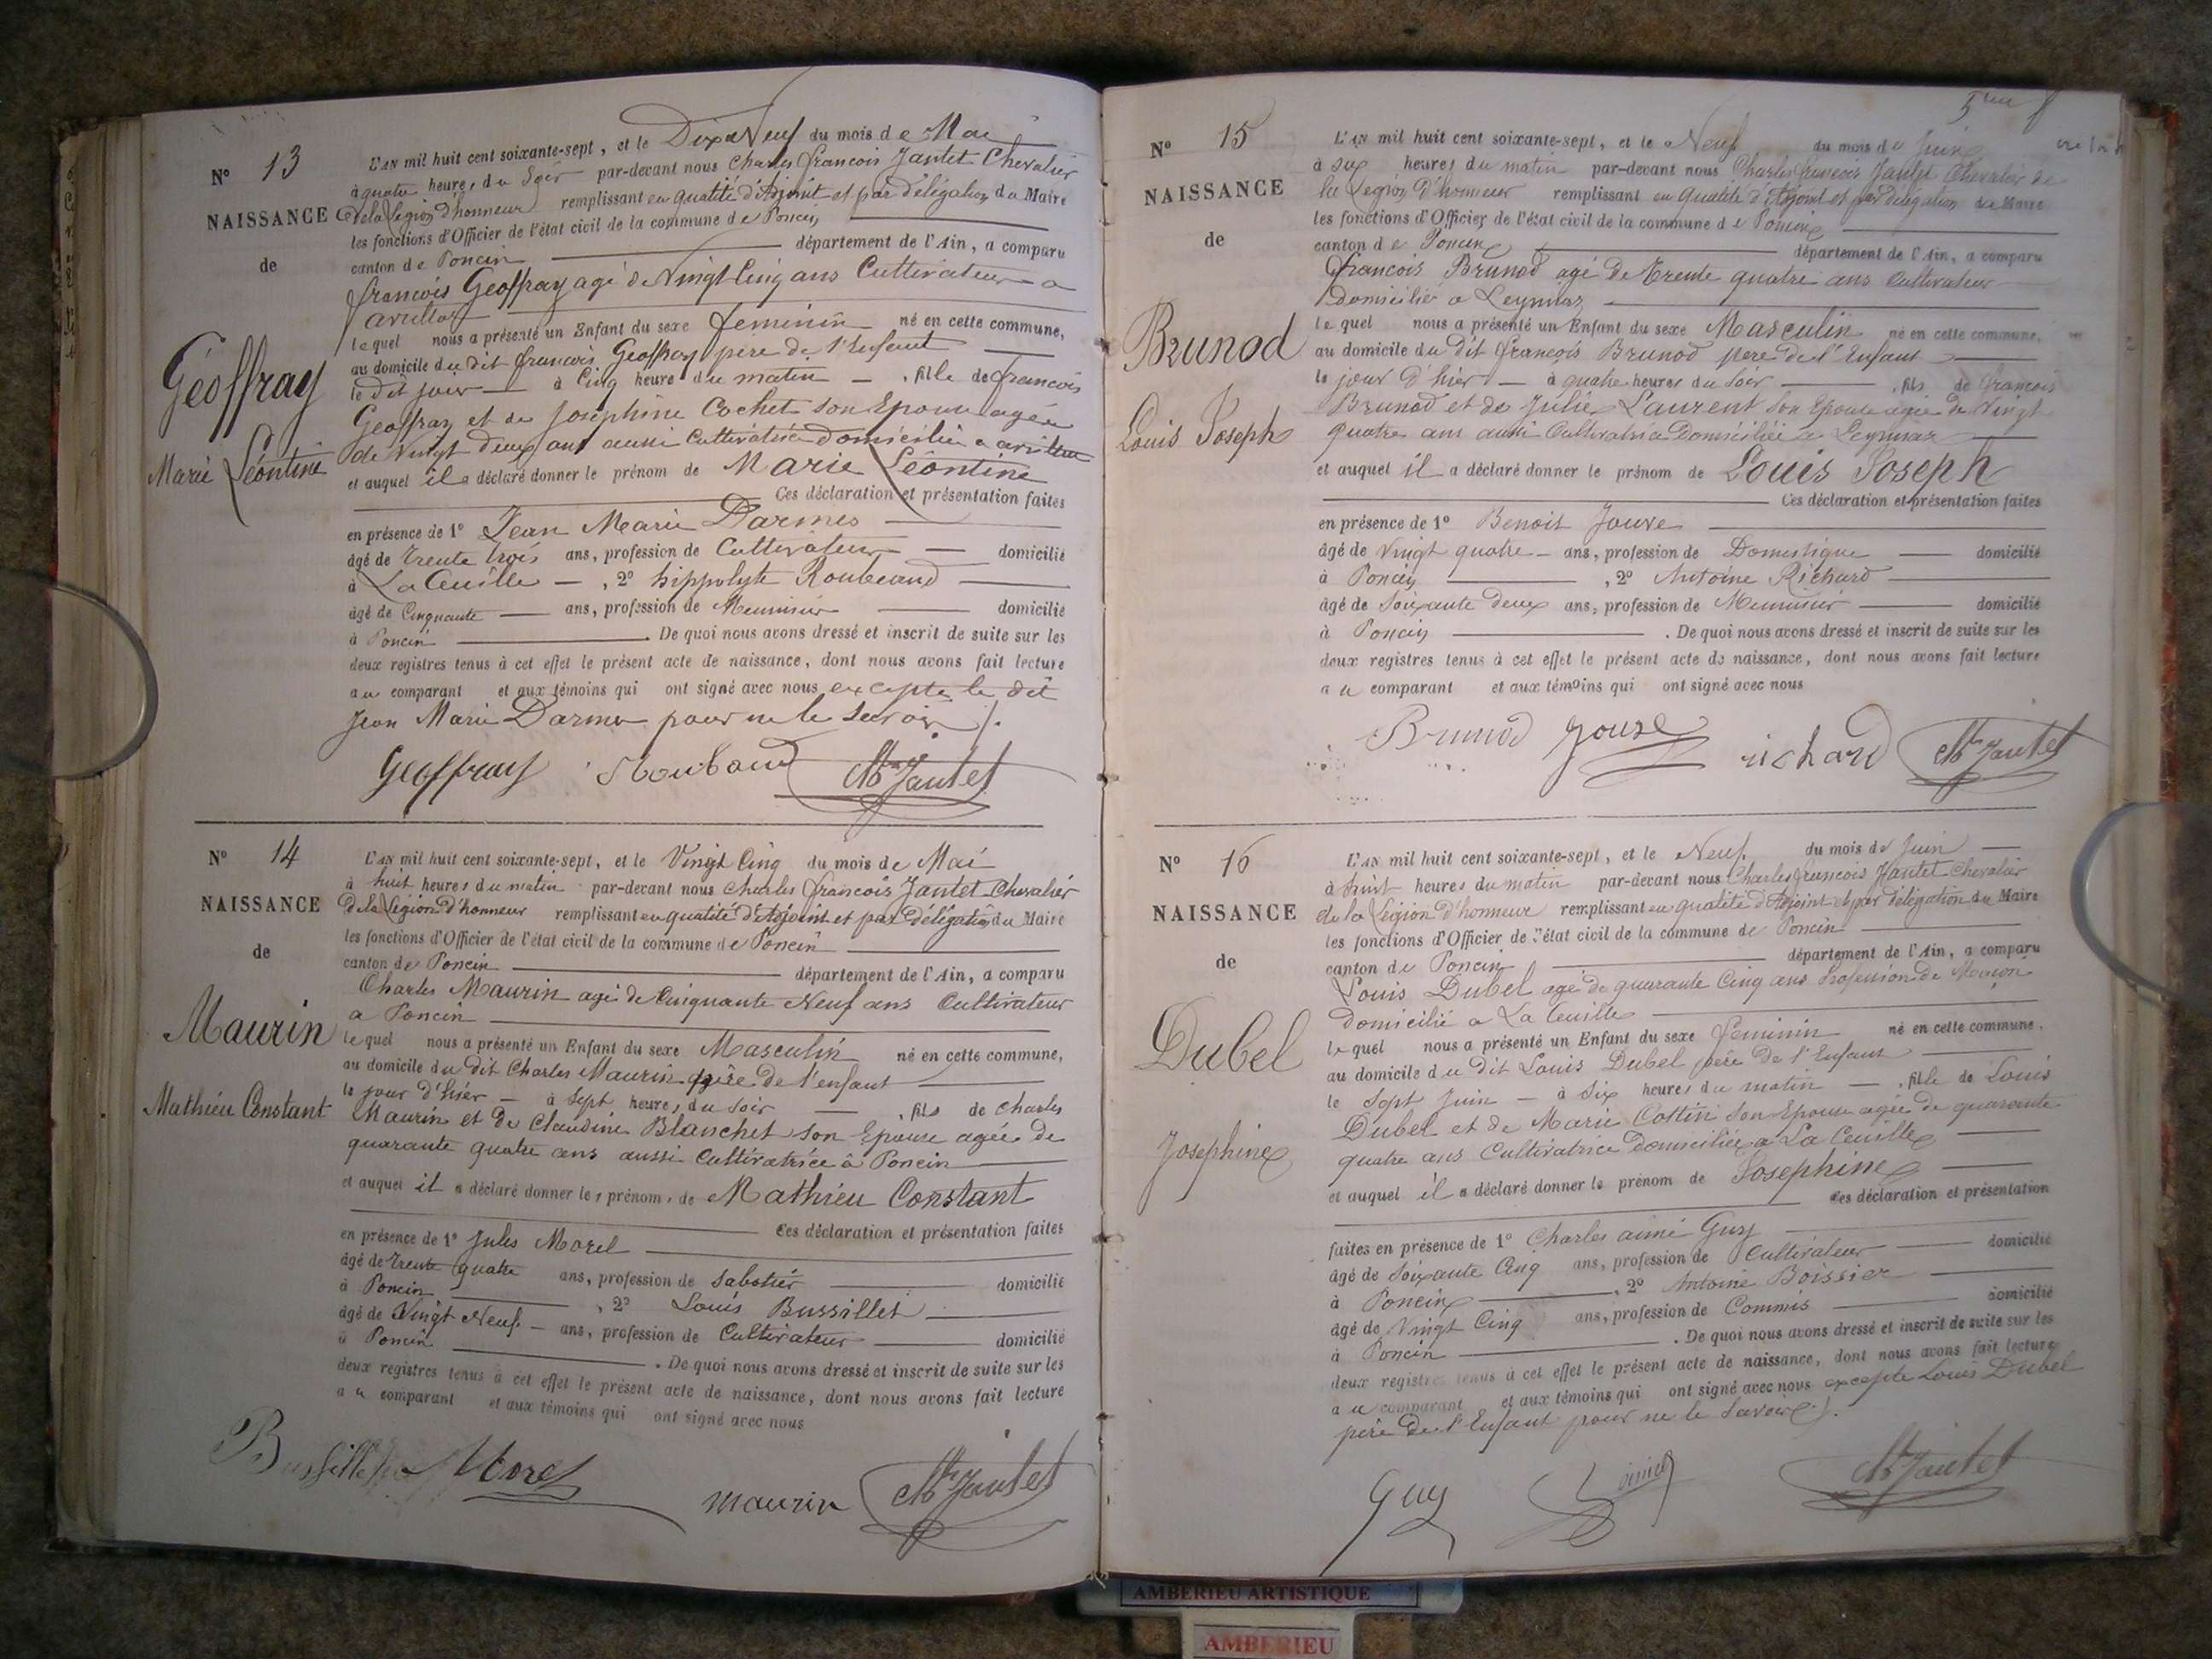 N° 13
NAISSANCE
de
Géoffray
Marie Léontine
L'AN mil huit cent soixante-sept, et le Dix Neuf du mois de Mai
à quatre heures du Soir par-devant nous Charles françois Jantet Chevalier
de la Légion d'honneur remplissant en qualité d'Adjoint et par délégation du Maire
les fonctions d'Officier de l'état civil de la commune de Poncin
canton de Poncin département de l'Ain, a comparu
françois Geoffray agé de Vingt Cinq ans Cultivateur a
avrillat
lequel nous a présenté un Enfant du sexe feminin né en cette commune,
au domicile du dit françois Geoffray père de l'Enfant
le dit jour à Cinq heure du matin , fille de françois
Geoffray et de Joséphine Cochet son Epouse agée
de Vingt deux ans aussi Cultivatrice domiciliée a
et auquel il a déclaré donner le prénom de Marie Léontine
Ces déclaration et présentation faites
en présence de 1° Jean Marie Darmes
âgé de trente trois ans, profession de Cultivateur domicilié
à La Cueille , 2° hippolyte Roubaud
âgé de Cinquante ans, profession de Menuisier domicilié
à Poncin . De quoi nous avons dressé et inscrit de suite sur les
deux registres tenus à cet effet le présent acte de naissance, dont nous avons fait lecture
au comparant et aux témoins qui ont signé avec nous excepte le dit
Jean Marie Darmes pour ne le Savoir /.
Geoffray Roubaud Ch Jantet
N° 14
NAISSANCE
de
Maurin
Mathieu Constant
L'AN mil huit cent soixante-sept, et le Vingt Cinq du mois de Mai
à huit heures du matin par-devant nous Charles françois Jantet Chevalier
De la Légion d'honneur remplissant en qualité d'Adjoint et par Délégation du Maire
les fonctions d'Officier de l'état civil de la commune de Poncin
canton de Poncin département de l'Ain, a comparu
Charles Maurin agé de Cinquante Neuf ans Cultivateur
a Poncin
lequel nous a présenté un Enfant du sexe Masculin né en cette commune,
au domicile du dit Charles Maurin père de l'enfant
le jour d'hier à Sept heures du Soir , fils de Charles
Maurin et de Claudine Blanchet son Epouse agée de
quarante quatre ans aussi Cultivatrice à Poncin
et auquel il a déclaré donner les prénoms de Mathieu Constant
Ces déclaration et présentation faites
en présence de 1° Jules Morel
âgé de trente quatre ans, profession de Sabotier domicilié
à Poncin , 2° Louis Bussillet
âgé de Vingt Neuf ans, profession de Cultivateur domicilié
à Poncin . De quoi nous avons dressé et inscrit de suite sur les
deux registres tenus à cet effet le présent acte de naissance, dont nous avons fait lecture
au comparant et aux témoins qui ont signé avec nous
Bussillet Morel maurin Ch Jantet
5me
N° 15
NAISSANCE
de
Brunod
Louis Joseph
L'AN mil huit cent soixante-sept, et le Neuf du mois de Juin
à six heures du matin par-devant nous Charles françois Jantet Chevalier de
la Légion d'honneur remplissant en qualité d'Adjoint et par délégation du Maire
les fonctions d'Officier de l'état civil de la commune de Poncin
canton de Poncin département de l'Ain, a comparu
françois Brunod agé de trente quatre ans Cultivateur
Domicilié a Leymiaz
lequel nous a présenté un Enfant du sexe Masculin né en cette commune,
au domicile du dit françois Brunod père de l'Enfant
le jour d'hier à quatre heures du Soir , fils de françois
Brunod et de Julie Laurent Son Epouse agée de Vingt
quatre ans aussi Cultivatrice Domiciliée a Leymiaz
et auquel il a déclaré donner le prénom de Louis Joseph
Ces déclaration et présentation faites
en présence de 1° Benoit Jouve
âgé de Vingt quatre ans, profession de Domestique domicilié
à Poncin , 2° Antoine Richard
âgé de Soixante deux ans, profession de Menuisier domicilié
à Poncin . De quoi nous avons dressé et inscrit de suite sur les
deux registres tenus à cet effet le présent acte de naissance, dont nous avons fait lecture
au comparant et aux témoins qui ont signé avec nous
Brunod Jouve richard Ch Jantet
N° 16
NAISSANCE
de
Dubel
Josephine
L'AN mil huit cent soixante-sept, et le Neuf du mois de Juin
à huit heures du matin par-devant nous Charles françois Jantet Chevalier
de la Légion d'honneur remplissant en qualité d'Adjoint et par délégation du Maire
les fonctions d'Officier de l'état civil de la commune de Poncin
canton de Poncin département de l'Ain, a comparu
Louis Dubel agé de quarante Cinq ans Profession de Maçon
domicilié a La Cueille
lequel nous a présenté un Enfant du sexe feminin né en cette commune,
au domicile du dit Louis Dubel père de l'Enfant
le Sept Juin à Six heures du matin , fille de Louis
Dubel et de Marie Cottin Son Epouse agée de quarante
quatre ans Cultivatrice Domiciliée a La Cueille
et auquel il a déclaré donner le prénom de Josephine
Ces déclaration et présentation
faites en présence de 1° Charles aimé Guy
âgé de Soixante Cinq ans, profession de Cultivateur domicilié
à Poncin , 2° Antoine Boissier
âgé de Vingt Cinq ans, profession de Commis domicilié
à Poncin . De quoi nous avons dressé et inscrit de suite sur les
deux registres tenus à cet effet le présent acte de naissance, dont nous avons fait lecture
au comparant et aux témoins qui ont signé avec nous excepte Louis Dubel
père de l'Enfant pour ne le Savoir /.
Guy Ch Jantet
AMBERIEU ARTISTIQUE
AMBERIEU